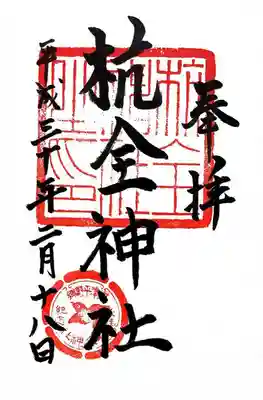 奉拝
杭全神社
平成三十年二月十八日